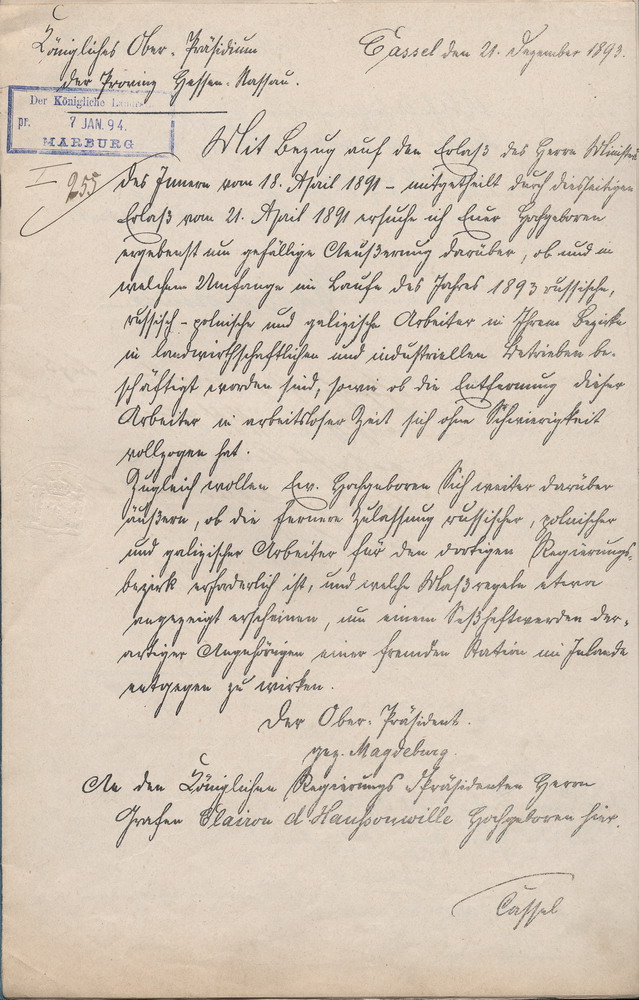 Königliches Ober-Präsidium
der Provinz Hessen-Nassau.
Cassel den 21. Dezember 1893.
Der Königliche Landrat
pr. 7 JAN. 94.
MARBURG
I 255
Mit Bezug auf den Erlaß des Herrn Ministers
des Innern vom 18. April 1891 – mitgetheilt durch diesseitigen
Erlaß vom 21. April 1891 ersuche ich Euer Hochgeboren
ergebenst um gefällige Aeußerung darüber, ob und in
welchem Umfange im Laufe des Jahres 1893 russische,
russisch-polnische und galizische Arbeiter in Ihrem Bezirke
in landwirthschaftlichen und industriellen Betrieben be-
schäftigt worden sind, sowie ob die Entfernung dieser
Arbeiter in arbeitsloser Zeit sich ohne Schwierigkeit
vollzogen hat.
Zugleich wollen Ew. Hochgeboren Sich weiter darüber
äußern, ob die fernere Zulassung russischer, polnischer
und galizischer Arbeiter für den dortigen Regierungs-
bezirk erforderlich ist, und welche Maßregeln etwa
angezeigt erscheinen, um einem Seßhaftwerden der-
artiger Angehörigen einer fremden Nation im Inlande
entgegen zu wirken.
Der Ober-Präsident.
gez. Magdeburg.
An den Königlichen Regierungs Präsidenten Herrn
Grafen Clairon d'Haussonville Hochgeboren hier.
Cassel